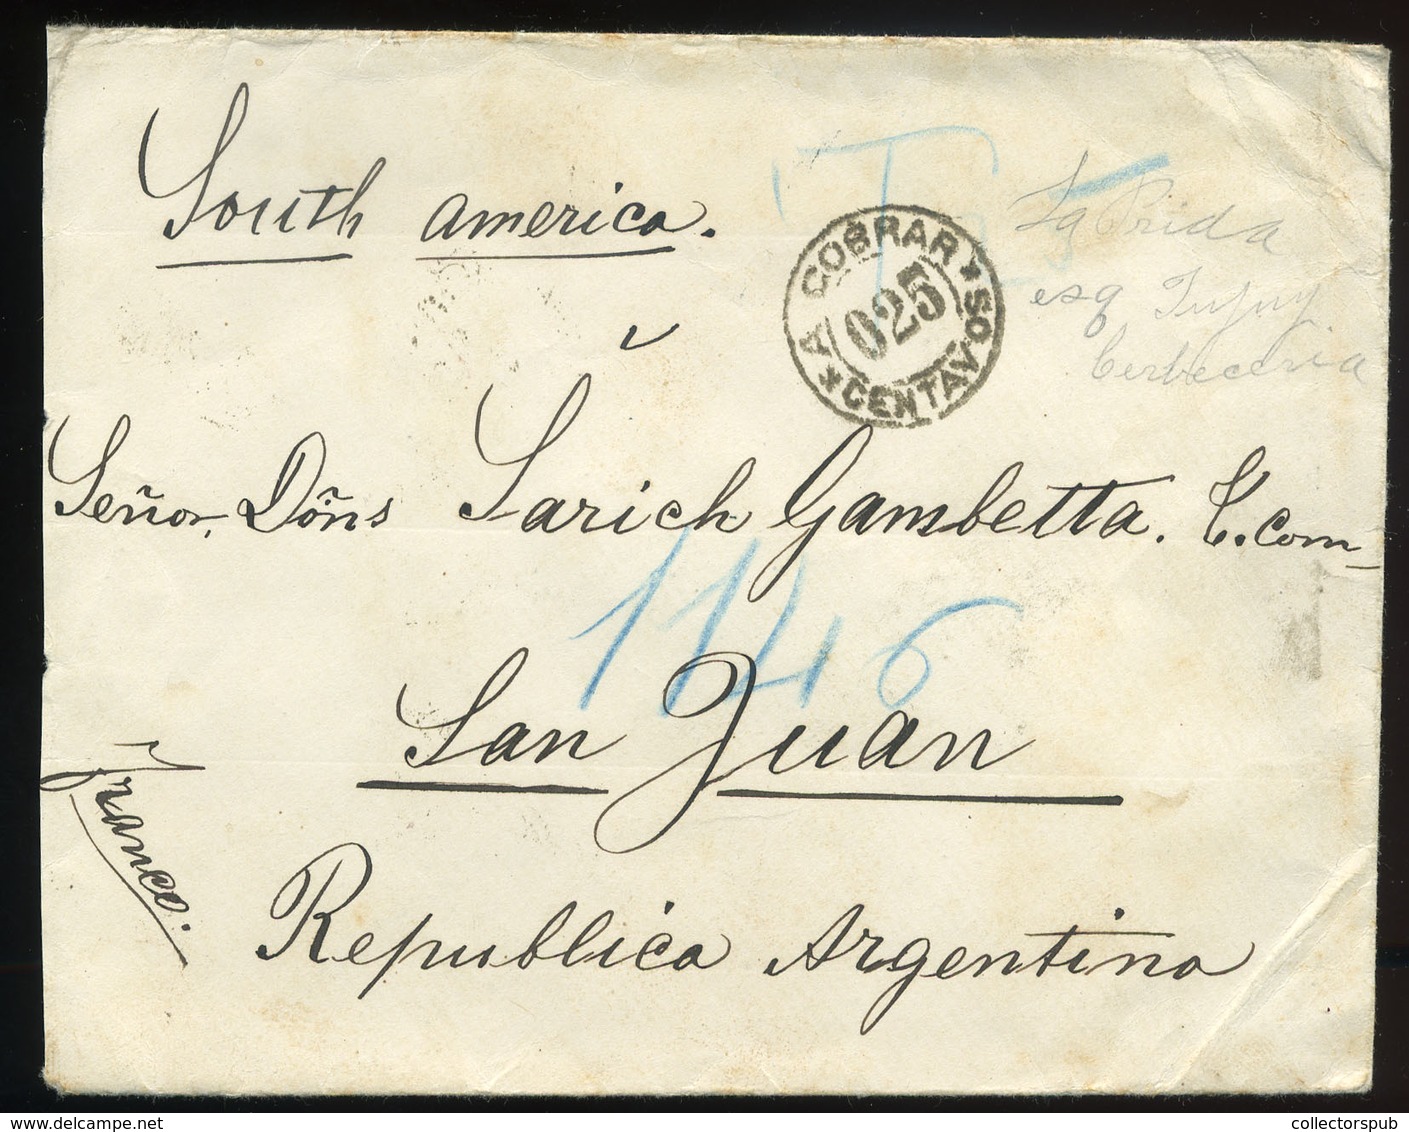 South america.
T 25
La Prida
esq Jujuy
Cerbeceria
A COBRAR * CENTAVOS *
025
Señor, Doñs Sarich Gambetta. C. Com-
1146
San Juan
Franco.
Republica Argentina
collectorspub.com